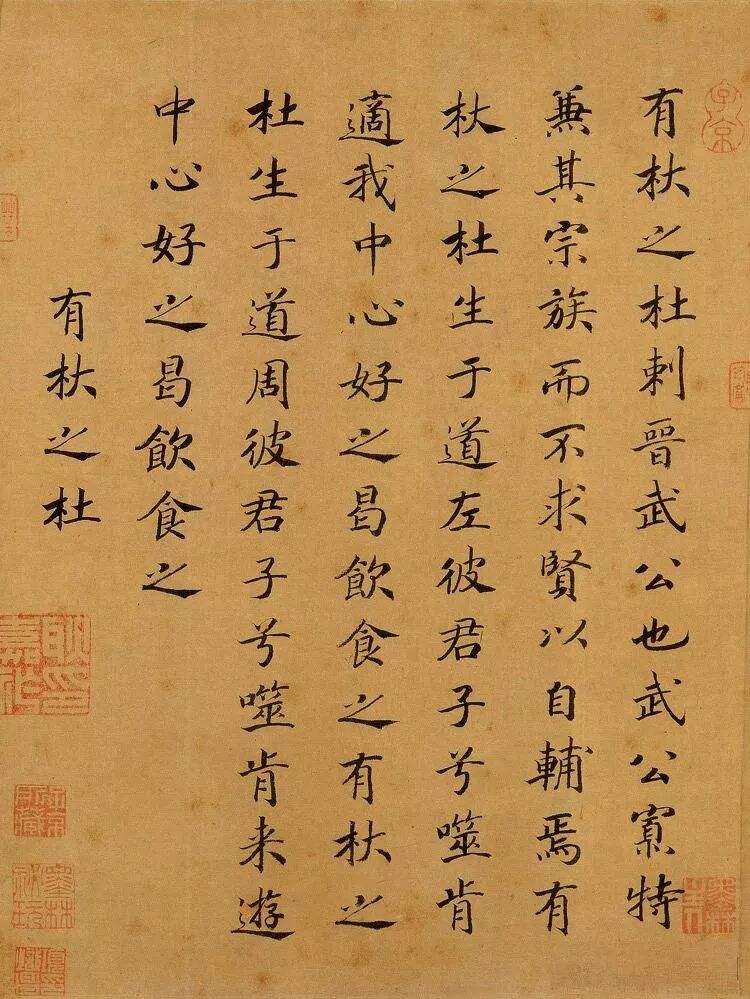 子京
有杕之杜刺晉武公也武公寡特
兼其宗族而不求賢以自輔焉有
杕之杜生于道左彼君子兮噬肯
適我中心好之曷飲食之有杕之
杜生于道周彼君子兮噬肯来遊
中心好之曷飲食之
有杕之杜